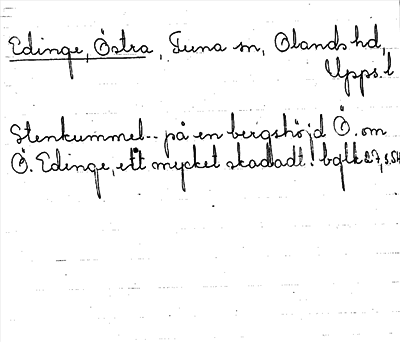 Edinge, Östra, Tuna sn, Olands hd,
Upps. l
Stenkummel-- på en bergshöjd Ö. om
Ö. Edinge, ett mycket skadadt! bglk 27, s. 54